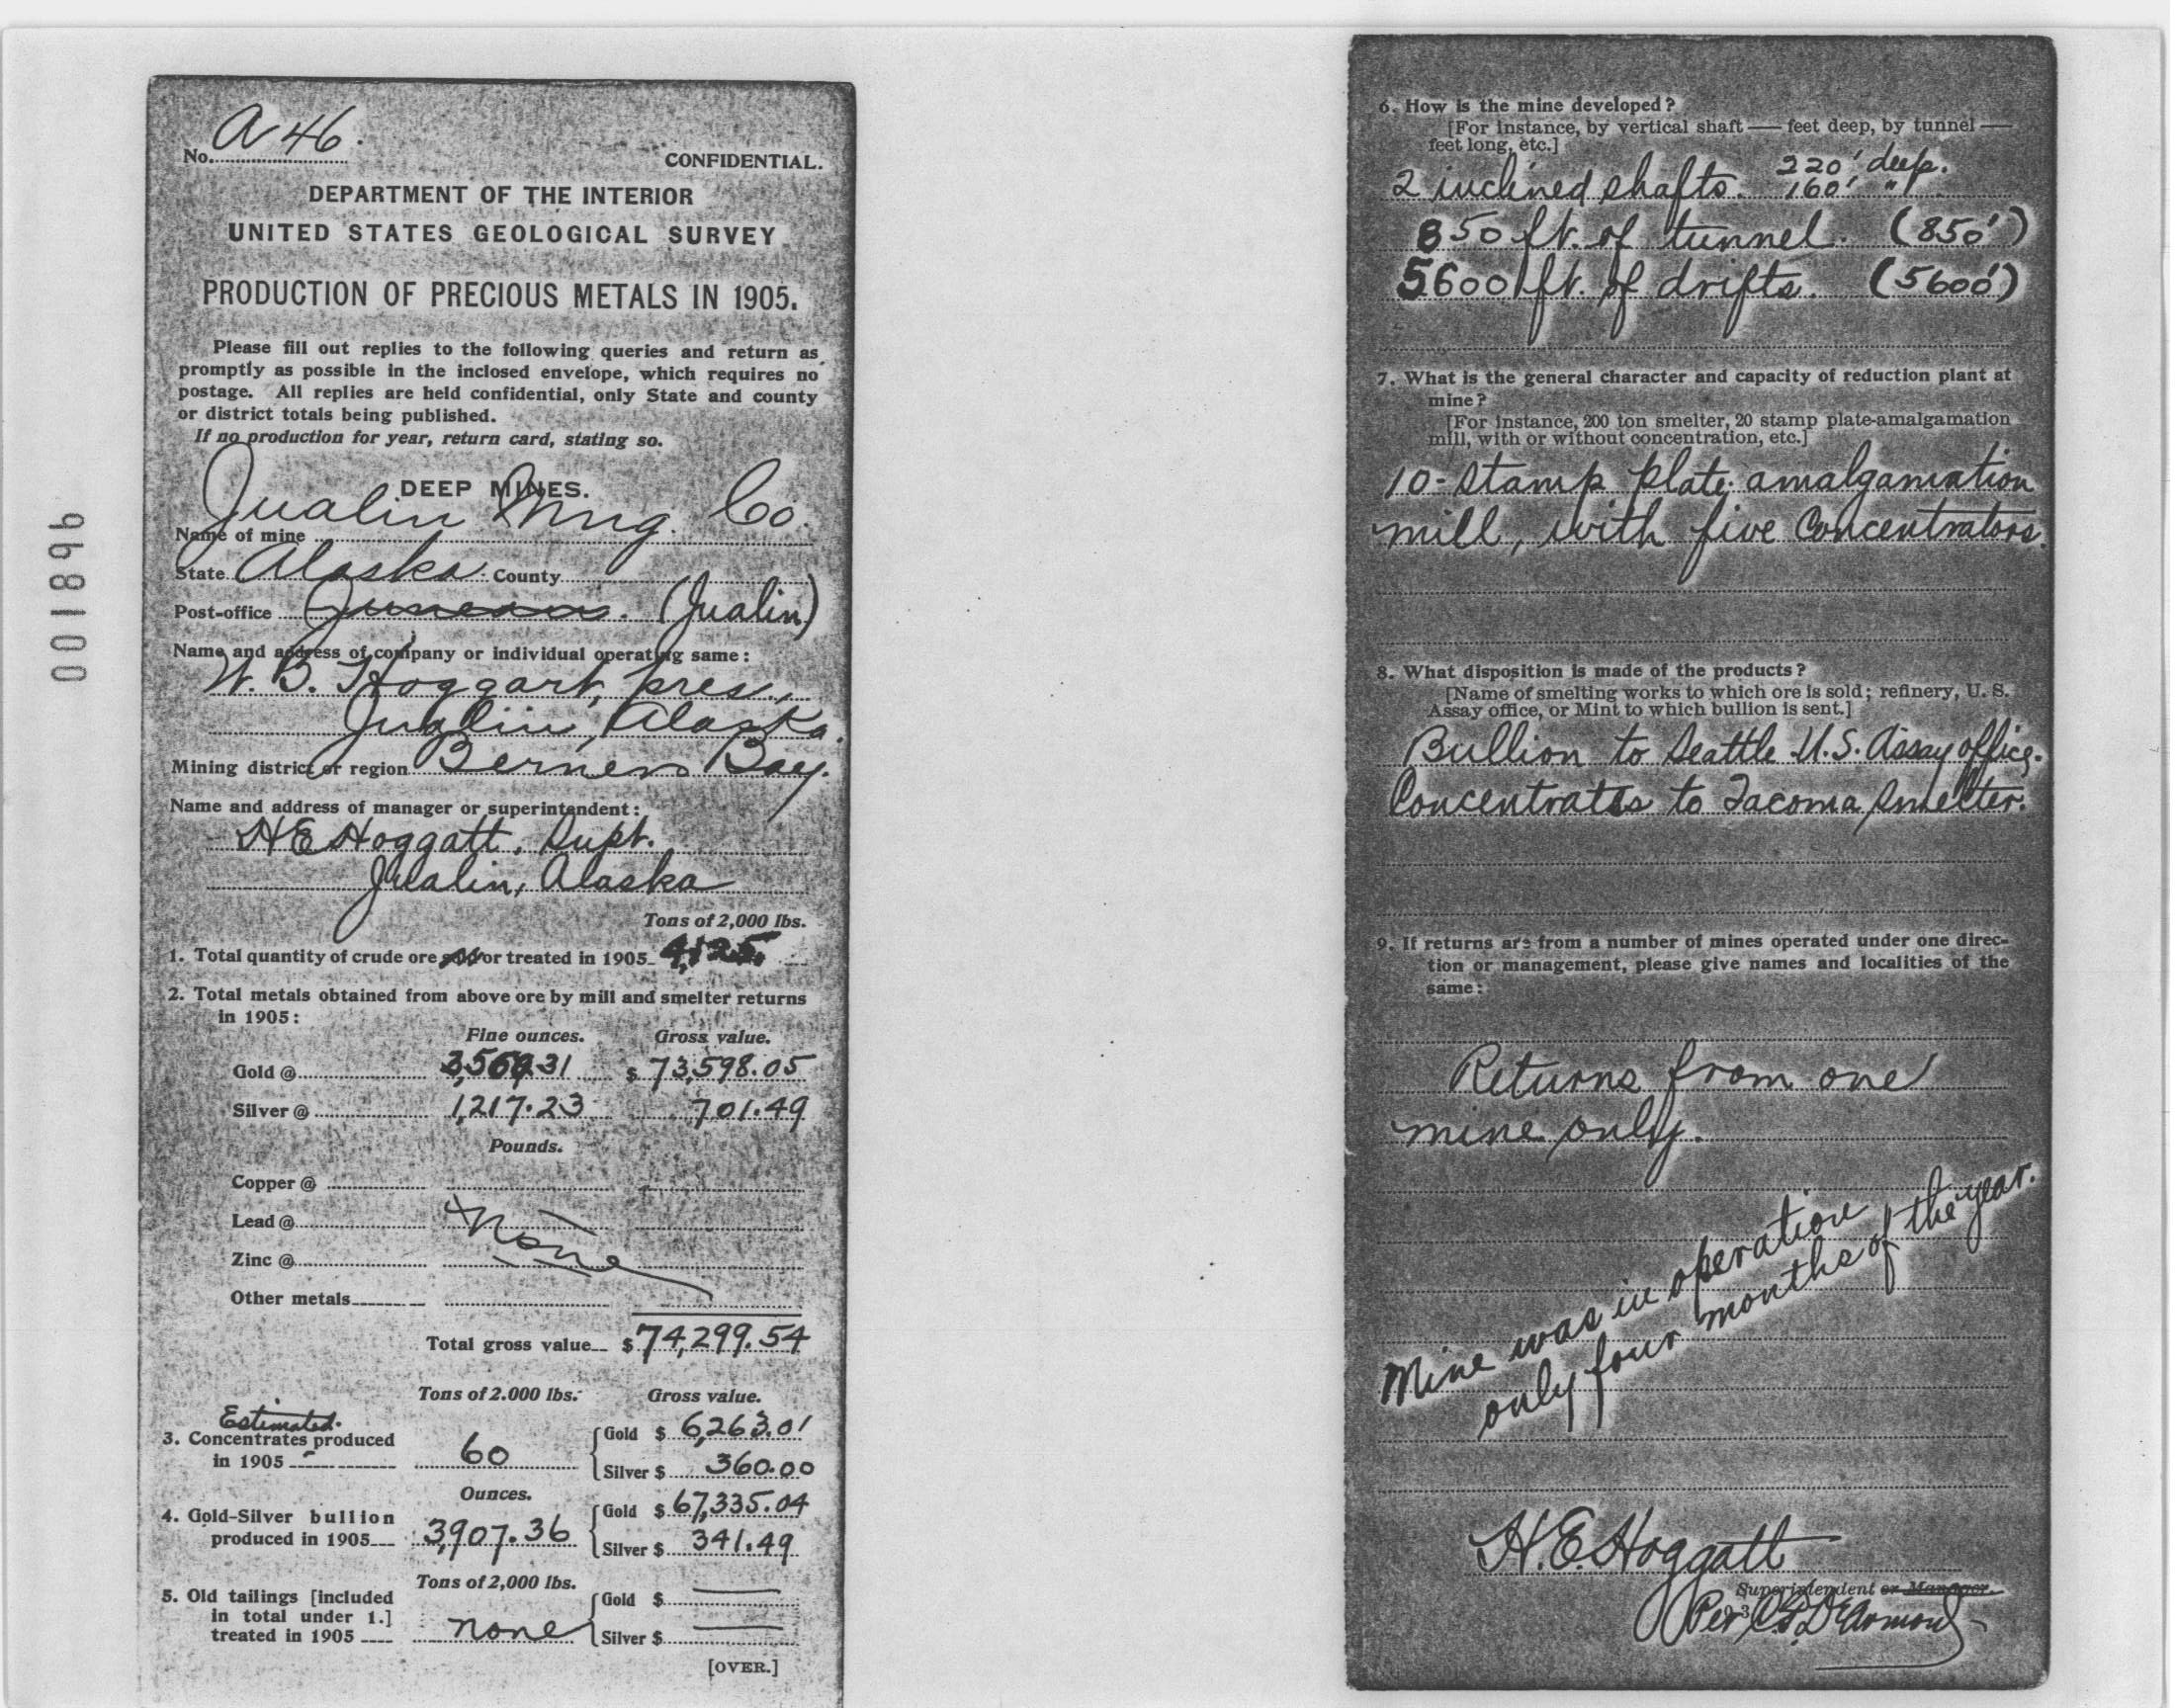 001896
No. A 46.
CONFIDENTIAL.
DEPARTMENT OF THE INTERIOR
UNITED STATES GEOLOGICAL SURVEY
PRODUCTION OF PRECIOUS METALS IN 1905.
Please fill out replies to the following queries and return as
promptly as possible in the inclosed envelope, which requires no
postage. All replies are held confidential, only State and county
or district totals being published.
If no production for year, return card, stating so.
DEEP MINES.
Name of mine Jualin Mng. Co.
State Alaska. County
Post-office Juneau. (Jualin)
Name and address of company or individual operating same:
W. B. Hoggart, pres.,
Jualin, Alaska.
Mining district or region Berners Bay.
Name and address of manager or superintendent:
H E Hoggatt, Supt.
Jualin, Alaska
Tons of 2,000 lbs.
1. Total quantity of crude ore sold or treated in 1905 4,125.
2. Total metals obtained from above ore by mill and smelter returns
in 1905:
Fine ounces. Gross value.
Gold @ 3,560.31 $ 73,598.05
Silver @ 1,217.23 701.49
Pounds.
Copper @
Lead @
None
Zinc @
Other metals
Total gross value $ 74,299.54
Tons of 2.000 lbs. Gross value.
Estimated.
3. Concentrates produced
in 1905 60
Gold $ 6,263.01
Silver $ 360.00
Ounces.
4. Gold-Silver bullion
produced in 1905 3,907.36
Gold $ 67,335.04
Silver $ 341.49
Tons of 2,000 lbs.
5. Old tailings [included
in total under 1.]
treated in 1905 none
Gold $
Silver $
[OVER.]
6. How is the mine developed?
[For instance, by vertical shaft — feet deep, by tunnel —
feet long, etc.]
2 inclined shafts. 220' deep.
160' "
850 ft. of tunnel. (850')
5600 ft. of drifts. (5600')
7. What is the general character and capacity of reduction plant at
mine?
[For instance, 200 ton smelter, 20 stamp plate-amalgamation
mill, with or without concentration, etc.]
10-stamp plate amalgamation
mill, with five Concentrators.
8. What disposition is made of the products?
[Name of smelting works to which ore is sold; refinery, U. S.
Assay office, or Mint to which bullion is sent.]
Bullion to Seattle U.S. Assay office.
Concentrates to Tacoma Smelter.
9. If returns are from a number of mines operated under one direc-
tion or management, please give names and localities of the
same:
Returns from one
mine only.
Mine was in operation
only four months of the year.
H. E. Hoggatt
Superintendent or Manager.
Per DeArmond